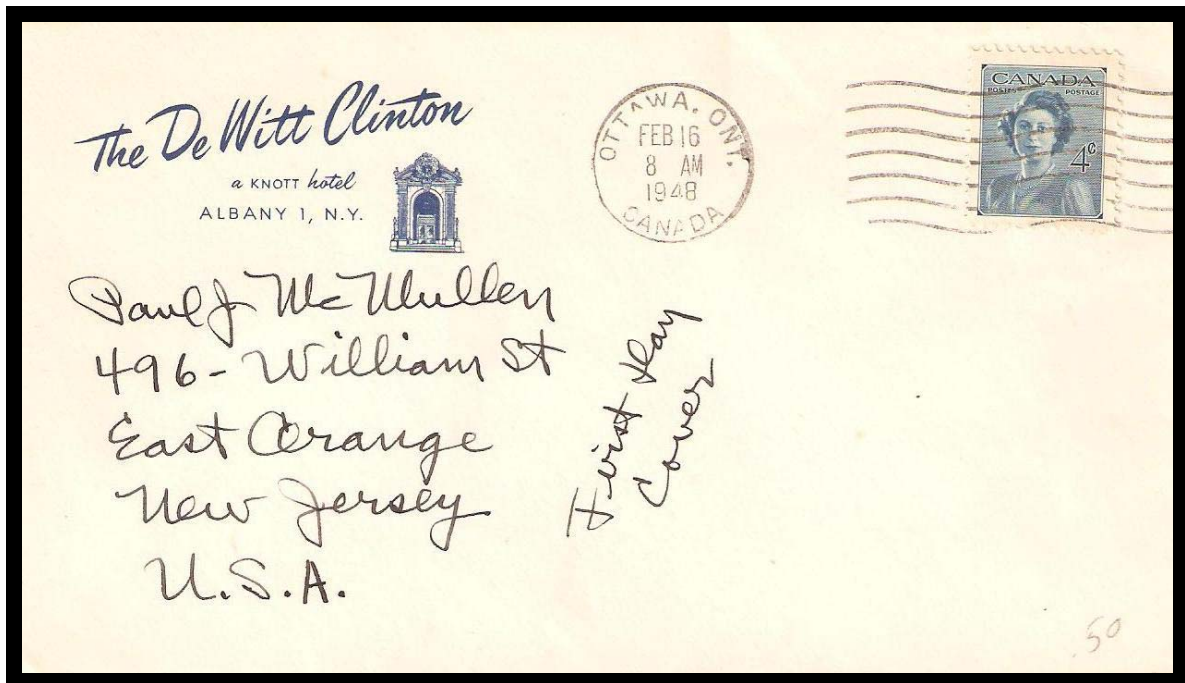 The De Witt Clinton
a KNOTT hotel
ALBANY 1, N.Y.
OTTAWA, ONT.
FEB 16
8 AM
1948
CANADA
CANADA
POSTES POSTAGE
4c
Paul J McMullen
496 - William St
East Orange
New Jersey
U.S.A.
First Day
Cover
50